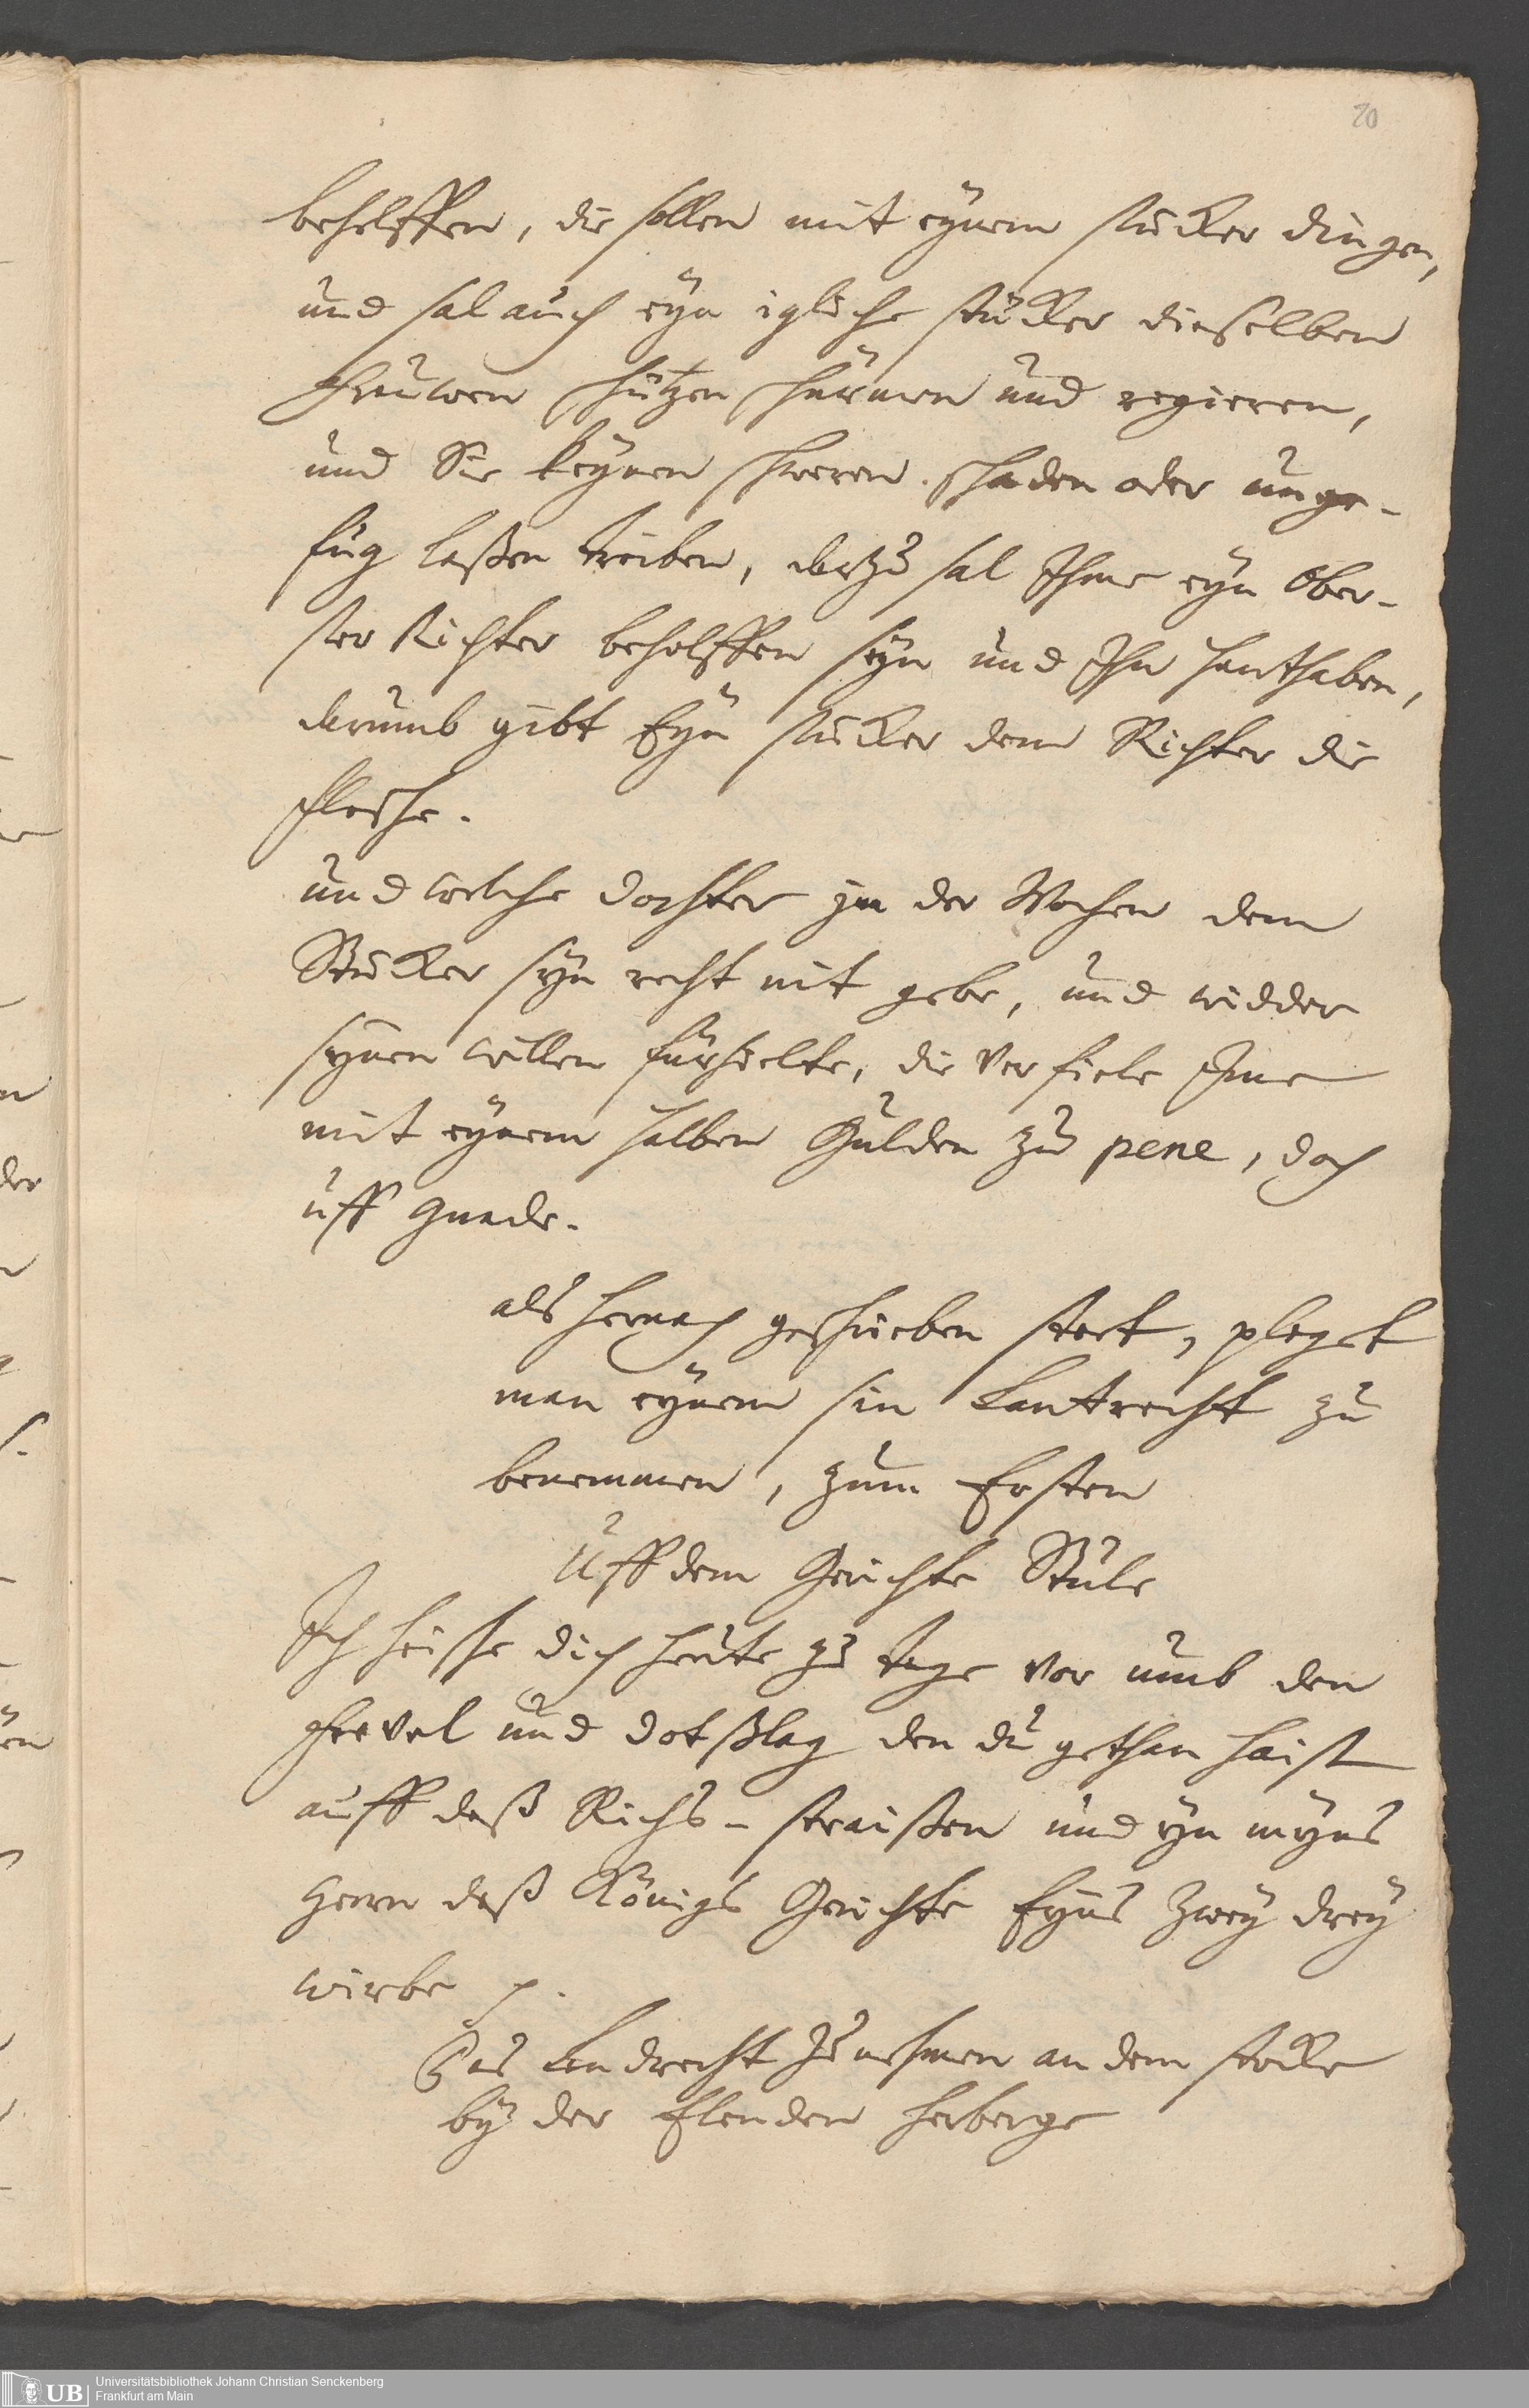 20
behelffen, die sollen mit eynem stücker dingen,
und sal auch eyn igliche stücker dieselben
ffrauwen schützen schürmen und regieren,
und Sie keynen schweren schaden oder unge-
fug laßen treiben, dartzu sal Ihme eyn Ober-
ster Richter beholffen seyn und Ihn hanthaben,
darumb gibt Eyn stücker dem Richter die
fflesche.
und welche dochter in der Wochen dem
Stücker syn recht nit gebe, und widder
synen willen fürhielte, die verfiele Ime
mit eynem halben Gulden zu pene, doch
uff gnade.
als hernach geschrieben stett, pleget
man eynem sin Lantrecht zu
benemmen, zum Ersten
Uff dem Gerichte Stule
Ich heische dich heute zu tage vor umb den
ffrevel und dotßlag den du gethan haist
auff deß Richs-straißen und yn myns
Herrn deß Königs Gerichte Eyns zwey drey
wirbe
Das Landrecht zu nehmen an dem stocke
by der Elenden herberge
UB Universitätsbibliothek Johann Christian Senckenberg
Frankfurt am Main